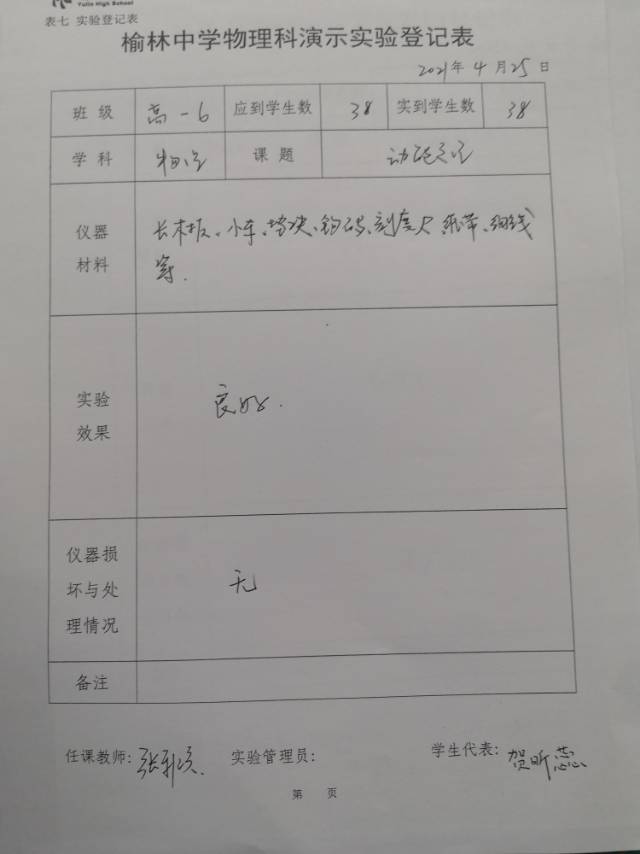 Yulin High School
表七 实验登记表
榆林中学物理科演示实验登记表
2021年 4 月 25 日
班 级 高一6 应到学生数 38 实到学生数 38
学 科 物理 课 题 动能定理
仪器 材料 长木板、小车、垫块、钩码、刻度尺、纸带、细线
等.
实验 效果 良好.
仪器损 坏与处 理情况 无
备注
任课教师: 张 实验管理员: 学生代表: 贺昕蕊
第 页